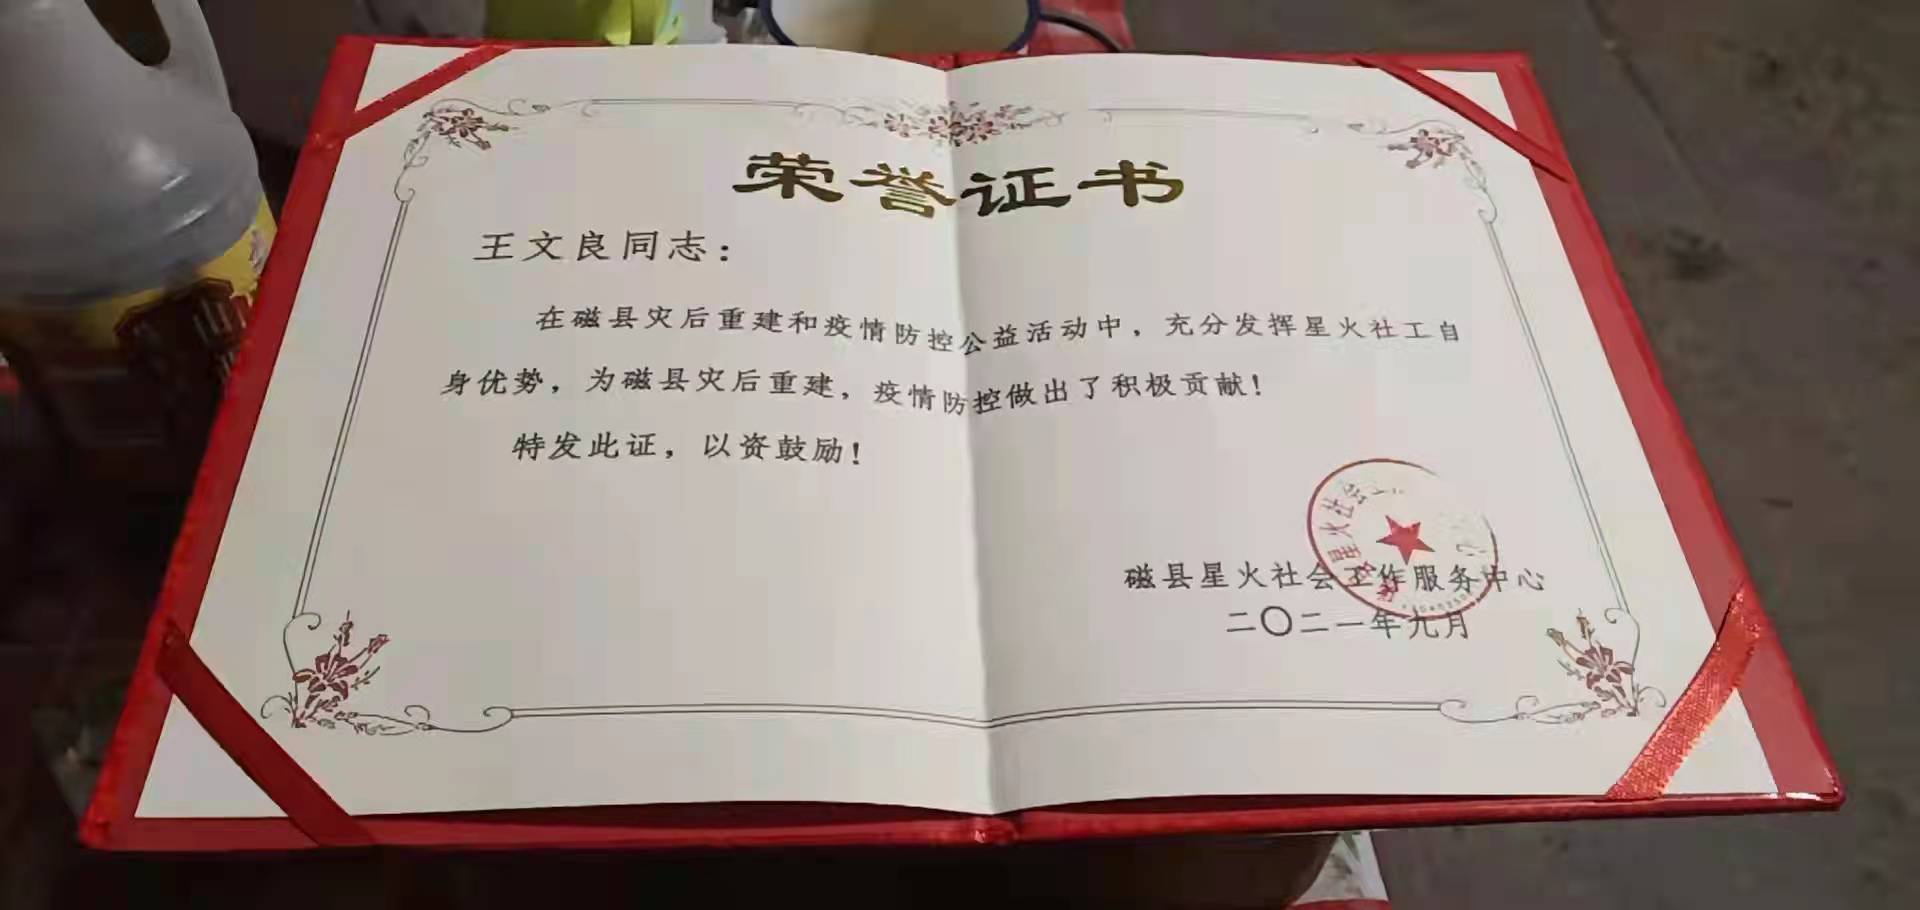 荣誉证书
王文良同志：
在磁县灾后重建和疫情防控公益活动中，充分发挥星火社工自
身优势，为磁县灾后重建，疫情防控做出了积极贡献！
特发此证，以资鼓励！
星火社会
磁县星火社会工作服务中心
二〇二一年九月